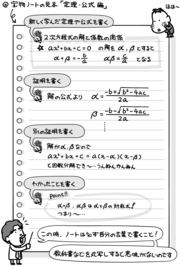 @ 宝物ノートの見本「定理・公式」編
ほほ〜
新しく学んだ定理や公式を書く
2次方程式の解と係数の関係
☆ ax²+bx+c=0 の解を α, β とすると
α+β=-b/a αβ=c/a となる
証明を書く
解の公式より α=(-b+√b²-4ac)/2a
β=(-b-√b²-4ac)/2a
別の証明を書く
解が α, β なので
ax²+bx+c=a(x-α)(x-β)
と因数分解でき〜うんぬんかんぬん
わかったことを書く
Point!!
α+β, αβ は α と β の対称式!
つまり〜…
この時、ノートは必ず自分の言葉で書くこと!
教科書などを丸写しすると意味がないのです